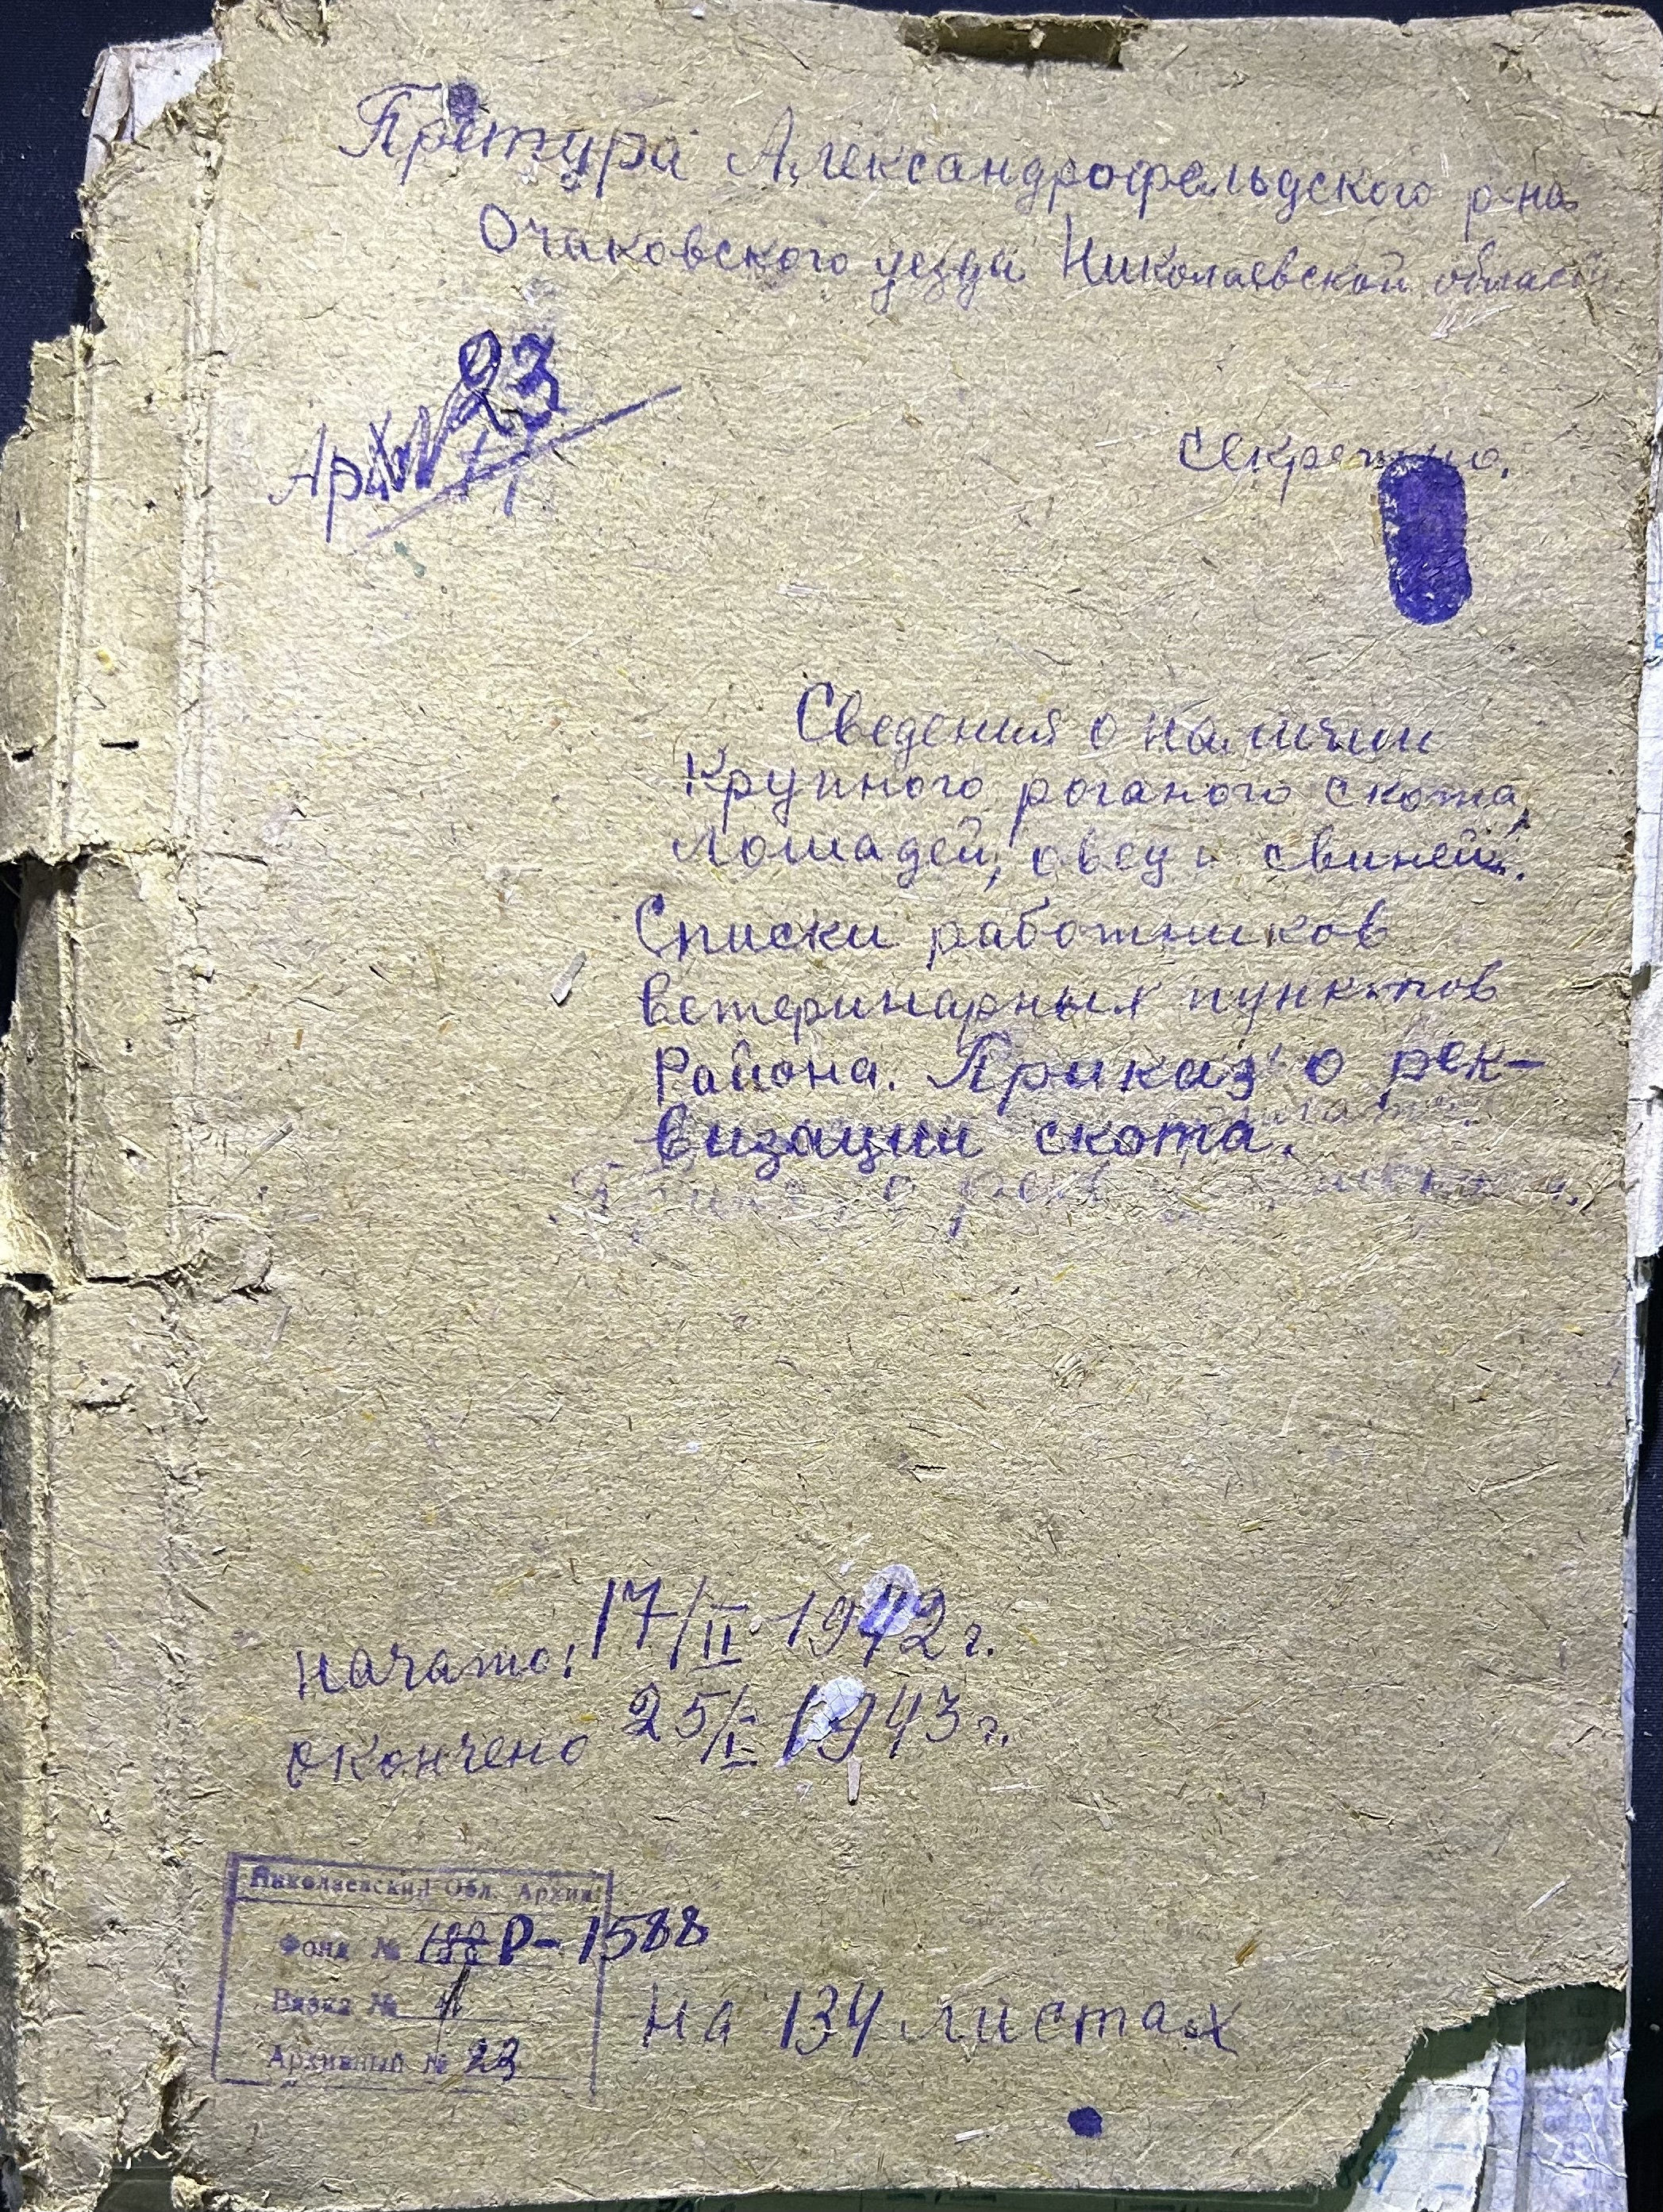 Претура Александрофельдского р-на
Очаковского уезда Николаевской области
23
Арх №
Секретно.
Сведения о наличии
крупного роганого скота,
лошадей, овец и свиней.
Списки работников
ветеринарных пунктов
района. Приказ о рек-
визации скота.
начато: 17/II 1942 г.
окончено 25/I 1943 г.
Николаевский Обл. Архив
Фонд № Р-1588
Вязка № 1
Архивный № 23
на 134 листах